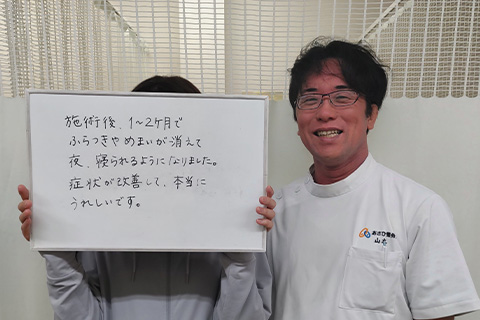 施術後、1〜2ケ月で
ふらつきやめまいが消えて
夜、寝られるようになりました。
症状が改善して、本当に
うれしいです。
あさひ整骨